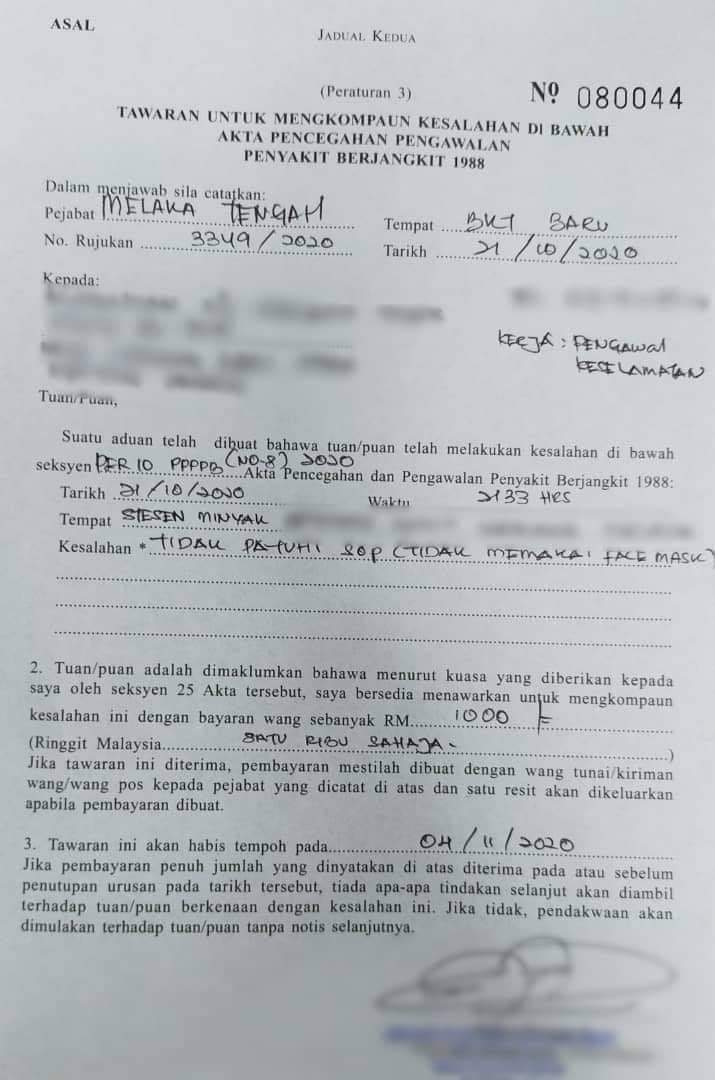 ASAL
JADUAL KEDUA
(Peraturan 3)
Nº 080044
TAWARAN UNTUK MENGKOMPAUN KESALAHAN DI BAWAH
AKTA PENCEGAHAN PENGAWALAN
PENYAKIT BERJANGKIT 1988
Dalam menjawab sila catatkan:
Pejabat MELAKA TENGAH
Tempat BKT BARU
No. Rujukan 3349/2020
Tarikh 21/10/2020
Kepada:
KERJA : PENGAWAL
KESELAMATAN
Tuan/Puan,
Suatu aduan telah dibuat bahawa tuan/puan telah melakukan kesalahan di bawah
seksyen PER 10 PPPPB (NO-8) 2020 Akta Pencegahan dan Pengawalan Penyakit Berjangkit 1988:
Tarikh 21/10/2020 Waktu 2133 HRS
Tempat STESEN MINYAK
Kesalahan * TIDAK PATUHI SOP (TIDAK MEMAKAI FACE MASK)
2. Tuan/puan adalah dimaklumkan bahawa menurut kuasa yang diberikan kepada
saya oleh seksyen 25 Akta tersebut, saya bersedia menawarkan untuk mengkompaun
kesalahan ini dengan bayaran wang sebanyak RM 1000
(Ringgit Malaysia SATU RIBU SAHAJA - )
Jika tawaran ini diterima, pembayaran mestilah dibuat dengan wang tunai/kiriman
wang/wang pos kepada pejabat yang dicatat di atas dan satu resit akan dikeluarkan
apabila pembayaran dibuat.
3. Tawaran ini akan habis tempoh pada 04/11/2020
Jika pembayaran penuh jumlah yang dinyatakan di atas diterima pada atau sebelum
penutupan urusan pada tarikh tersebut, tiada apa-apa tindakan selanjut akan diambil
terhadap tuan/puan berkenaan dengan kesalahan ini. Jika tidak, pendakwaan akan
dimulakan terhadap tuan/puan tanpa notis selanjutnya.